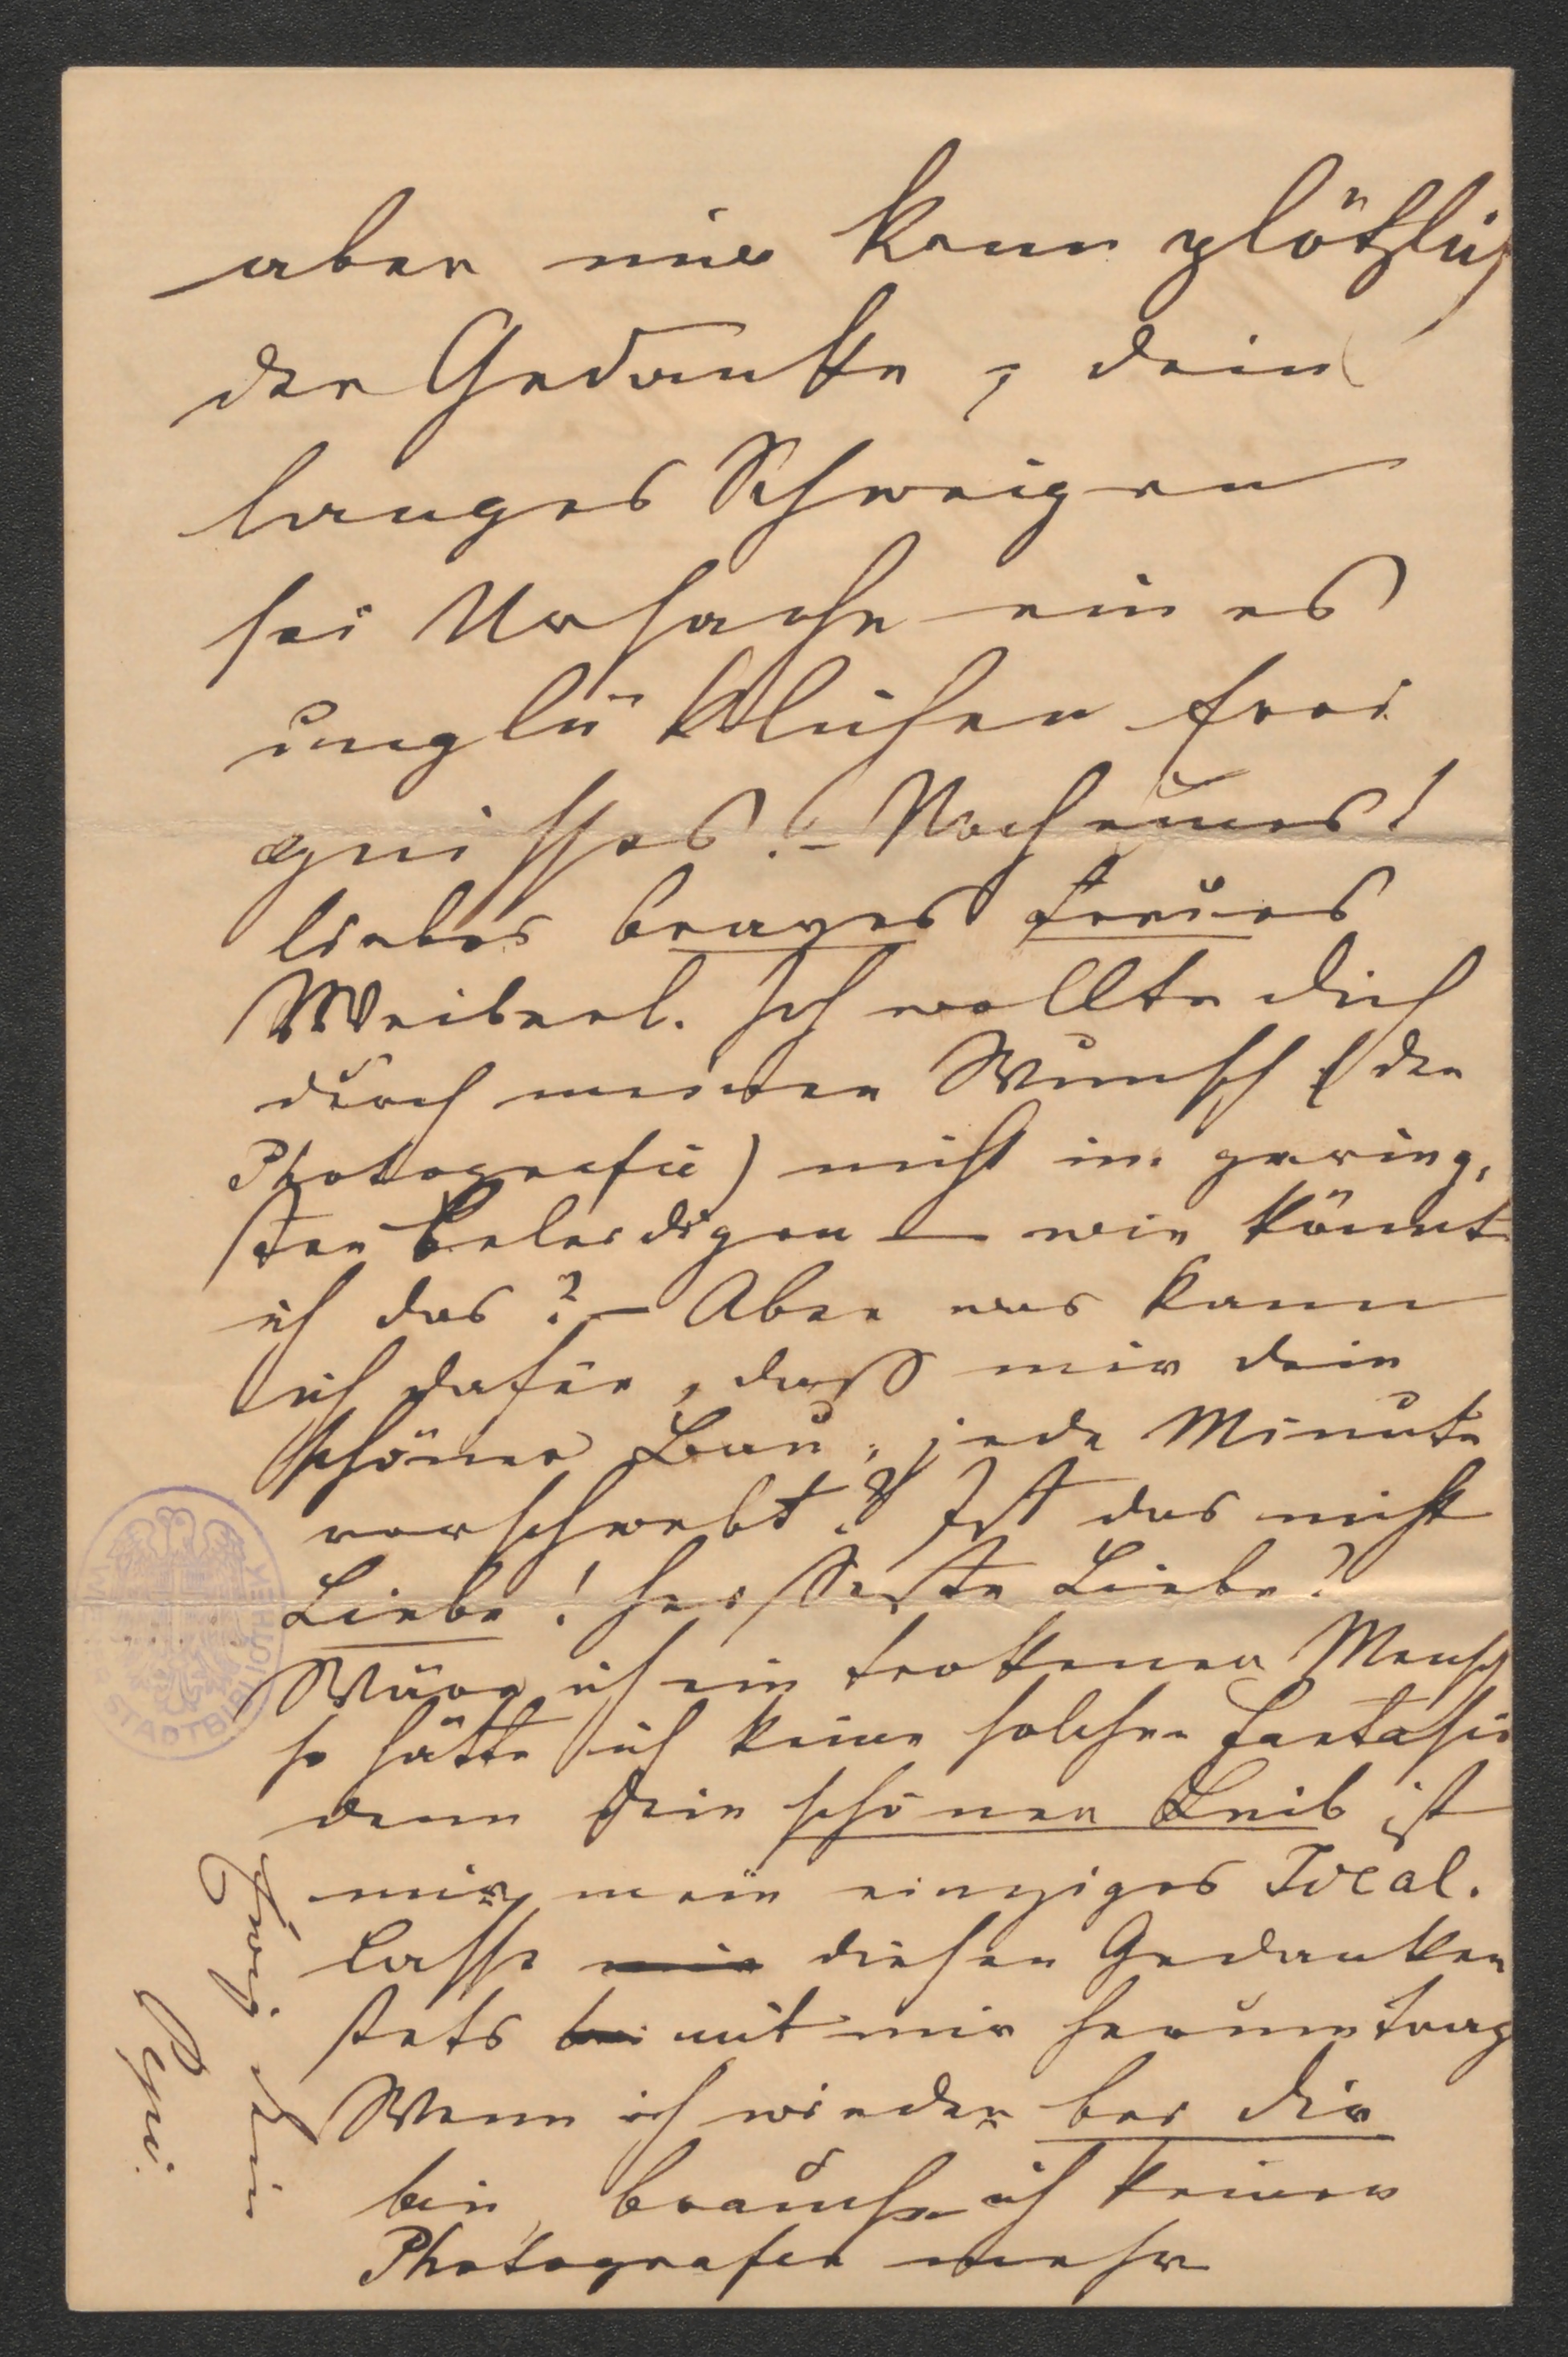 aber mir kam plötzlich
der Gedanke, dein
langes Schweigen
sei Ursache eines
unglücklichen Erei
gnisses! – Noch eines!
liebes braves treues
Weiberl. Ich wollte dich
durch meinen Wunsch (der
Photografie) nicht im gering,
sten beleidigen – wie könnt
ich das? – Aber was kann
ich dafür, daß mir dein
schöner Bau, jede Minute
vorschwebt? Ist das nicht
Liebe! heißeste Liebe?
Wäre ich ein trokener Mensch
so hätte ich keine solche Fantasie
denn dein schöner Leib ist
mir mein einziges Ideal.
Lasse mir diesen Gedanken
stets bei mit mir herumtrag
Wenn ich wieder bei dir
bin, brauche ich keinen
Photografen mehr
Ewig dein
Pepi.
STADTBIBLIOTHEK